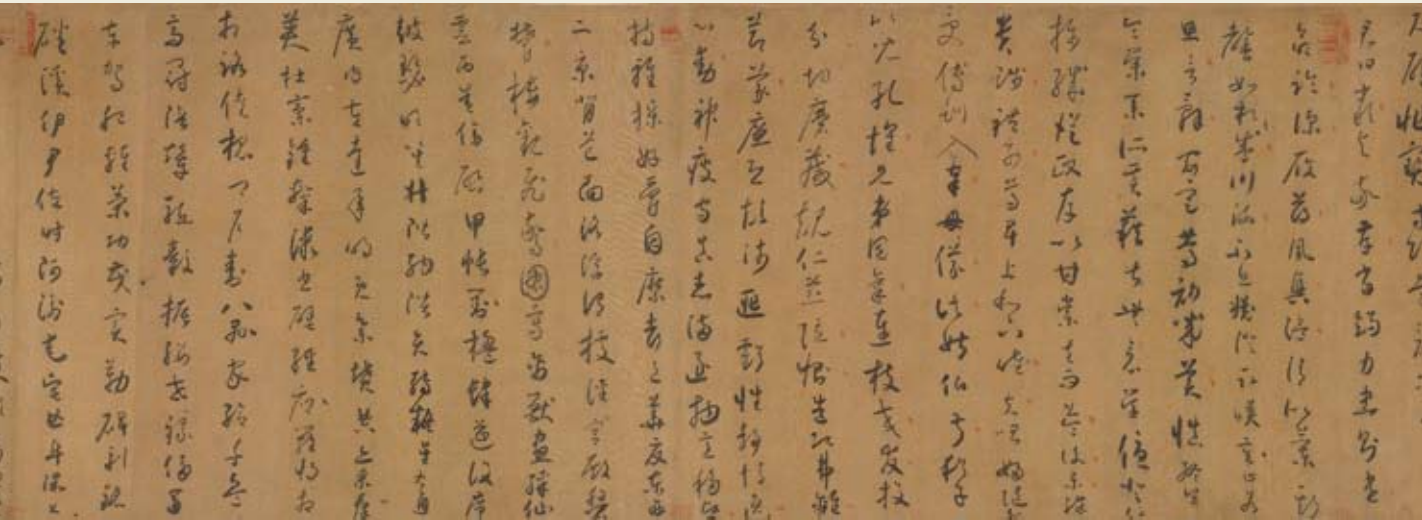 尺璧非寶寸陰是
君曰嚴與敬孝當竭力忠則盡
命臨深履薄夙興溫凊似蘭斯
馨如松之盛川流不息淵澄取暎容止若
思言辭安定篤初誠美慎終宜
令榮業所基籍甚無竟學優登仕
攝職從政存以甘棠去而益詠樂殊
貴賤禮別尊卑上和下睦夫唱婦隨外
受傅訓入奉母儀諸姑伯叔猶子
比兒孔懷兄弟同氣連枝交友投
分切磨箴規仁慈隱惻造次弗離
節義廉退顛沛匪虧性靜情逸
心動神疲守真志滿逐物意移堅
持雅操好爵自縻都邑華夏東西
二京背芒面洛浮渭據涇宮殿盤
鬱樓觀飛驚圖寫禽獸畫綵仙
靈丙舍傍啟甲帳對楹肆筵設席
鼓瑟吹笙升階納陛弁轉疑星右通
廣內左達承明既集墳典亦聚群
英杜稾鍾隸漆書壁經府羅將相
路俠槐卿戶封八縣家給千兵
高冠陪輦驅轂振纓世祿侈富
車駕肥輕策功茂實勒碑刻銘
磻溪伊尹佐時阿衡奄宅曲阜微旦